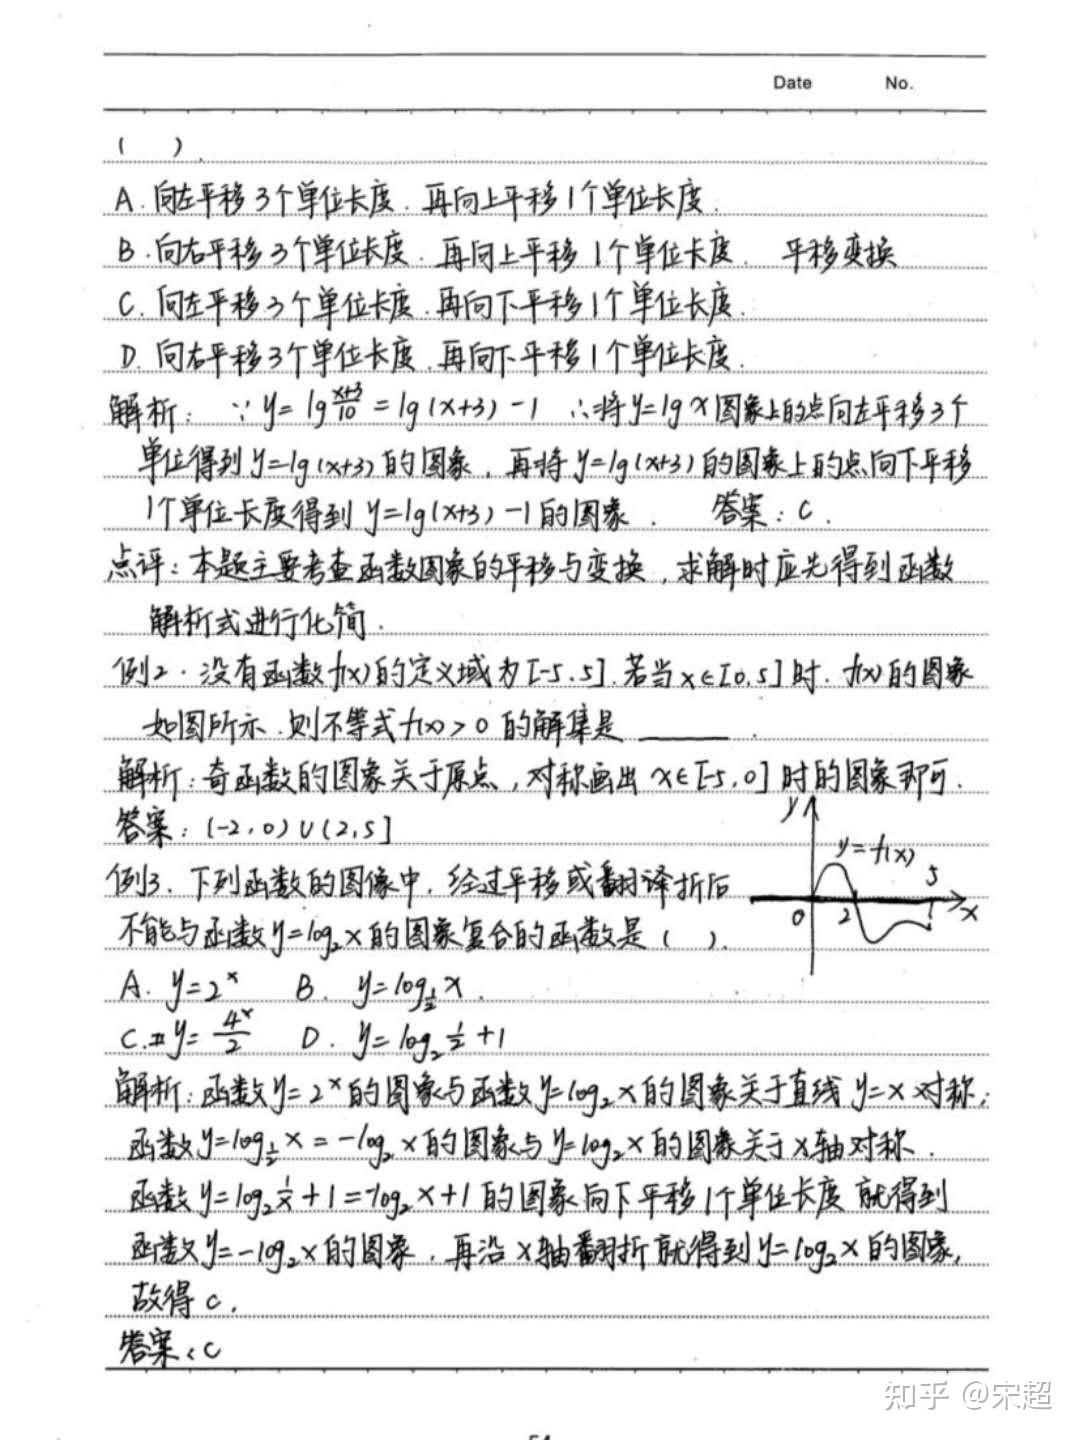 Date No.
( ).
A. 向左平移3个单位长度. 再向上平移1个单位长度.
B. 向右平移3个单位长度. 再向上平移1个单位长度. 平移变换
C. 向左平移3个单位长度. 再向下平移1个单位长度.
D. 向右平移3个单位长度. 再向下平移1个单位长度.
解析: ∵ y=lg (x+3)/10 = lg(x+3)-1 ∴将y=lgx图象上的点向左平移3个
单位得到y=lg(x+3)的图象, 再将y=lg(x+3)的图象上的点向下平移
1个单位长度得到y=lg(x+3)-1的图象. 答案: C.
点评: 本题主要考查函数图象的平移与变换, 求解时应先得到函数
解析式进行化简.
例2. 没有函数f(x)的定义域为[-5,5]. 若当x∈[0,5]时. f(x)的图象
如图所示. 则不等式f(x)>0的解集是 ______.
解析: 奇函数的图象关于原点, 对称画出x∈[-5,0]时的图象即可.
答案: (-2,0)∪(2,5]
y
y=f(x)
5
0 2 x
例3. 下列函数的图像中, 经过平移或翻译折后
不能与函数y=log₂x的图象复合的函数是( ).
A. y=2ˣ B. y=log½x.
C. y=4ˣ/2 D. y=log₂½+1
解析: 函数y=2ˣ的图象与函数y=log₂x的图象关于直线y=x对称;
函数y=log½x=-log₂x的图象与y=log₂x的图象关于x轴对称.
函数y=log₂1/x+1=-log₂x+1的图象向下平移1个单位长度就得到
函数y=-log₂x的图象, 再沿x轴翻折就得到y=log₂x的图象,
故得C.
答案: C
知乎 @宋超